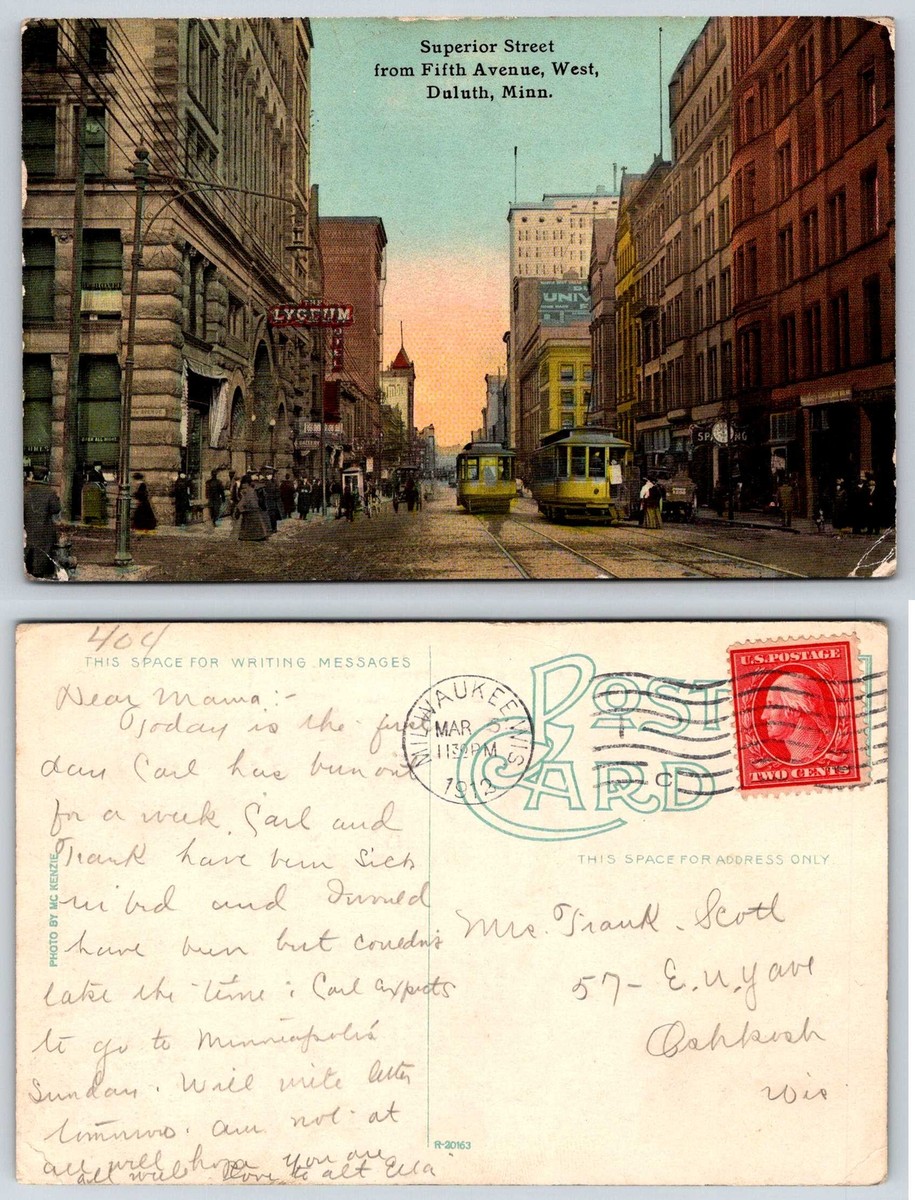 Superior Street
from Fifth Avenue, West,
Duluth, Minn.
THE
LYCEUM
UNIV
404
THIS SPACE FOR WRITING MESSAGES
Dear Mama:-
Today is the
day Carl has been out
for a week. Carl and
Frank have been sick
in bed and I
have been but couldn't
take the time. Carl expects
to go to Minneapolis
Sunday. Will write letter
tomorrow. am not at
all well hope you are
all well love to all Ella
PHOTO BY MC KENZIE
R-20163
POST
CARD
MILWAUKEE, WIS
MAR
1130PM
1913
U.S. POSTAGE
TWO CENTS
THIS SPACE FOR ADDRESS ONLY
Mrs. Frank Scott
57- E. N.Y ave
Oshkosh
Wis